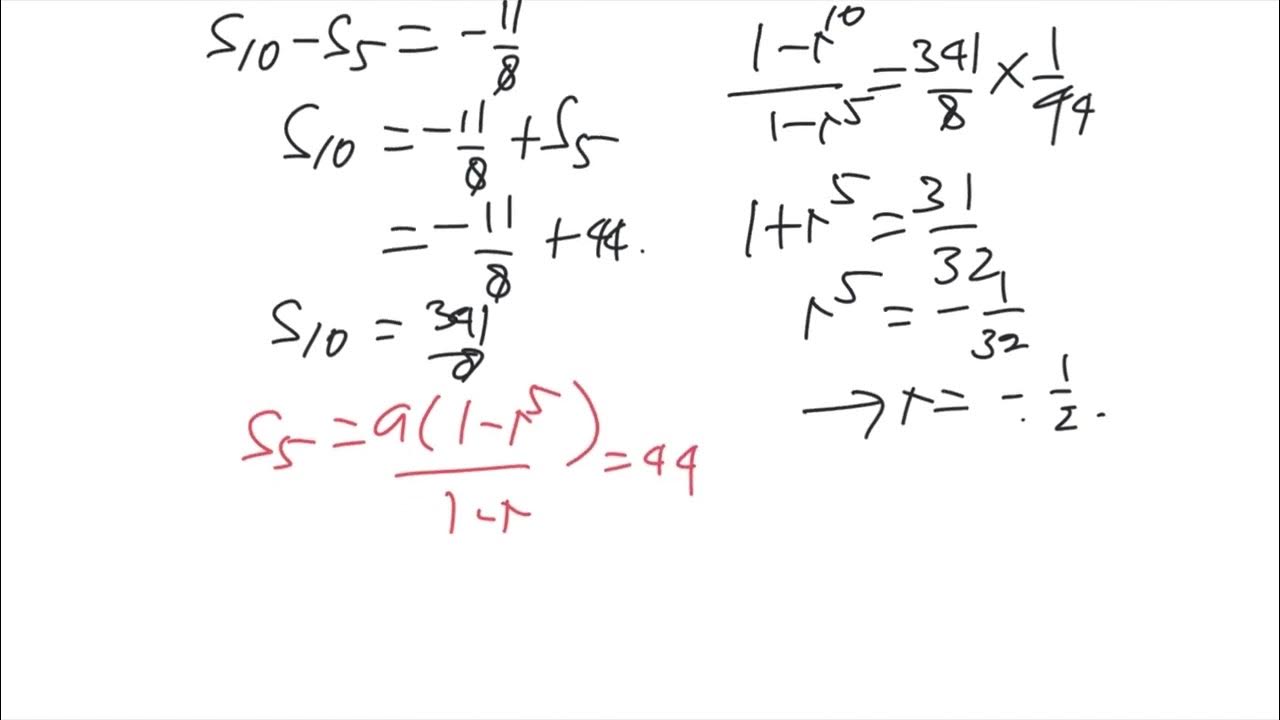 S₁₀ − S₅ = −11/8
S₁₀ = −11/8 + S₅
= −11/8 + 44.
S₁₀ = 341/8
S₅ = a(1−r⁵)/(1−r) = 44
(1−r¹⁰)/(1−r⁵) = 341/8 × 1/44
1+r⁵ = 31/32
r⁵ = −1/32
→ r = −1/2.